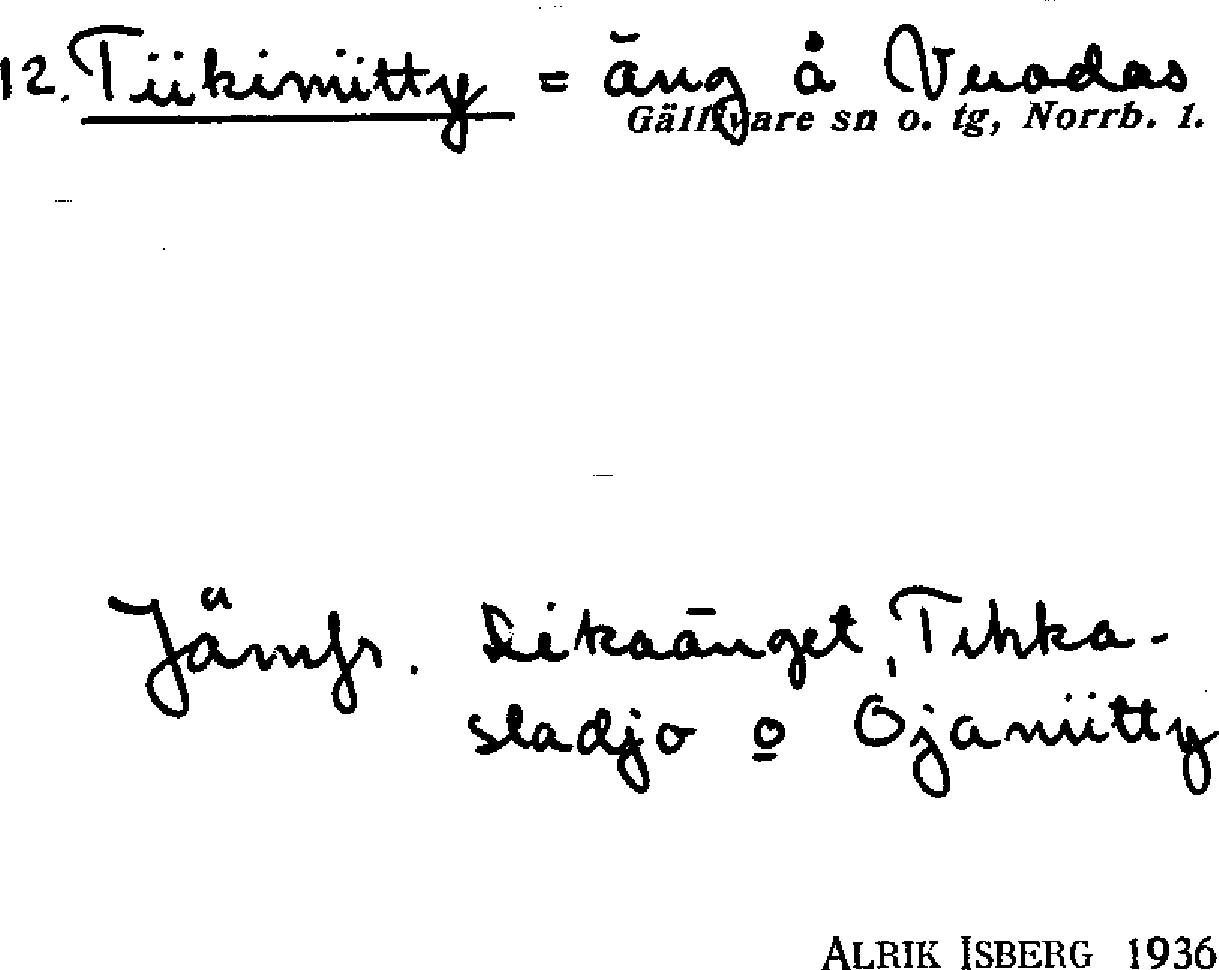 12. Tiikimitty = äng å Vuodas
Gällivare sn o. tg, Norrb. l.
Jämfr. Dikaänget, Tihka-
sladjo o Ojaniitty
ALRIK ISBERG 1936